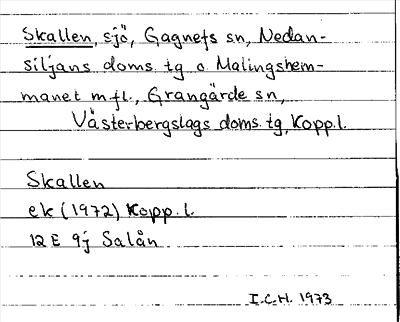 Skallen, sjö, Gagnefs sn, Nedan-
siljans doms. tg o. Malingshem-
manet m.fl., Grangärde sn,
Västerbergslags doms. tg, Kopp. l.
Skallen
ek (1972) Kopp. l.
12 E 9j Salån
I.C.H. 1973